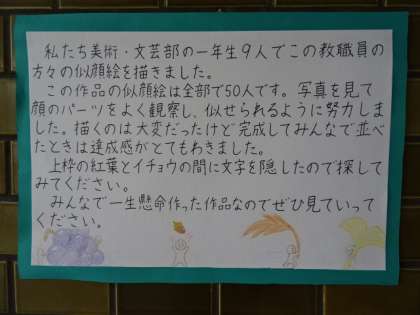 私たち美術・文芸部の一年生9人でこの教職員の
方々の似顔絵を描きました。
この作品の似顔絵は全部で50人です。写真を見て
顔のパーツをよく観察し、似せられるように努力しま
した。描くのは大変だったけど完成してみんなで並べ
たときは達成感がとてもわきました。
上枠の紅葉とイチョウの間に文字を隠したので探して
みてください。
みんなで一生懸命作った作品なのでぜひ見ていって
ください。